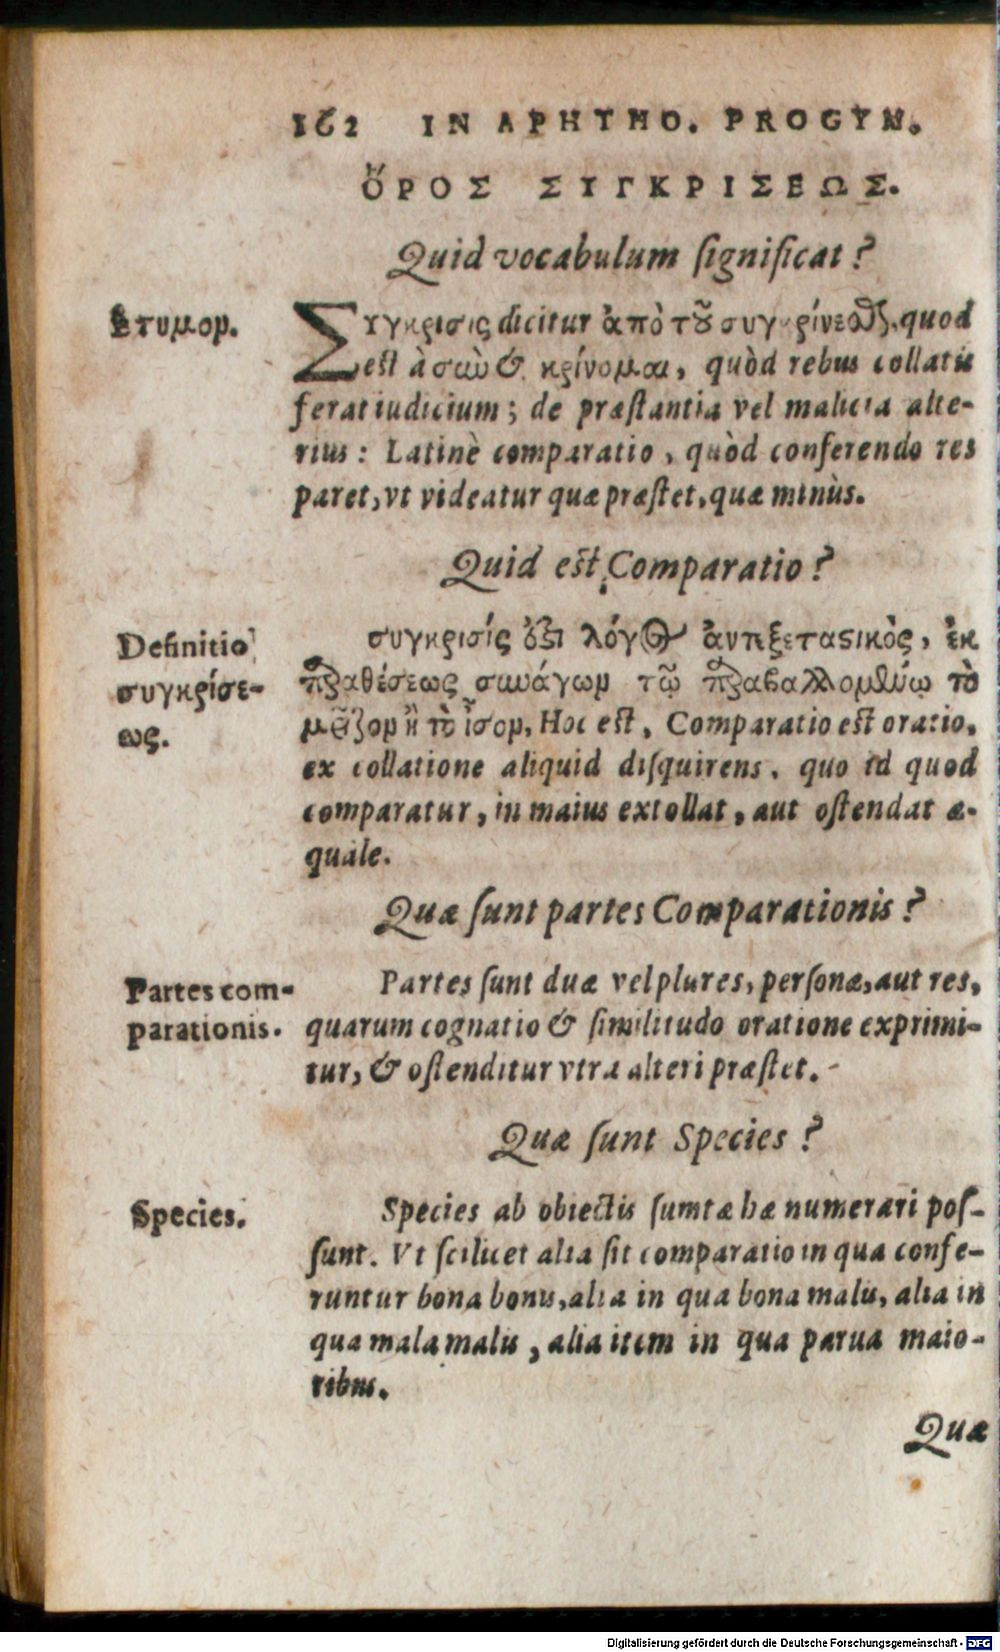 162 IN APHTHO. PROGYN.
ὍΡΟΣ ΣΥΓΚΡΙΣΕΩΣ.
Quid vocabulum ſignificat?
Ετυμον.
Σύγκρισις dicitur ἀπὸ τοῦ συγκρίνεσθαι, quod
est à σὺν & κρίνομαι, quòd rebus collatis
ferat iudicium; de præſtantia vel malicia alte-
rius: Latinè comparatio, quòd conferendo res
paret, vt videatur quæ præſtet, quæ minùs.
Quid est Comparatio?
Definitio
συγκρίσε-
ως.
συγκρισίς ὁξι λόγος ἀντεξεταςικὸς, ἐκ
παραθέσεως συνάγων τῷ παραβαλλομένῳ τὸ
μεῖζον ἢ τὸ ἶσον, Hoc est, Comparatio est oratio,
ex collatione aliquid diſquirens, quo id quod
comparatur, in maius extollat, aut oſtendat æ-
quale.
Quæ ſunt partes Comparationis?
Partes com-
parationis.
Partes ſunt duæ vel plures, perſonæ, aut res,
quarum cognatio & ſimilitudo oratione exprimi-
tur, & oſtenditur vtra alteri præſtet.
Quæ ſunt Species?
Species.
Species ab obiectis ſumtæ hæ numerari poſ-
ſunt. Vt ſcilicet alia ſit comparatio in qua confe-
runtur bona bonis, alia in qua bona malis, alia in
qua mala malis, alia item in qua parua maio-
ribus.
Quæ
Digitalisierung gefördert durch die Deutsche Forschungsgemeinschaft - DFG